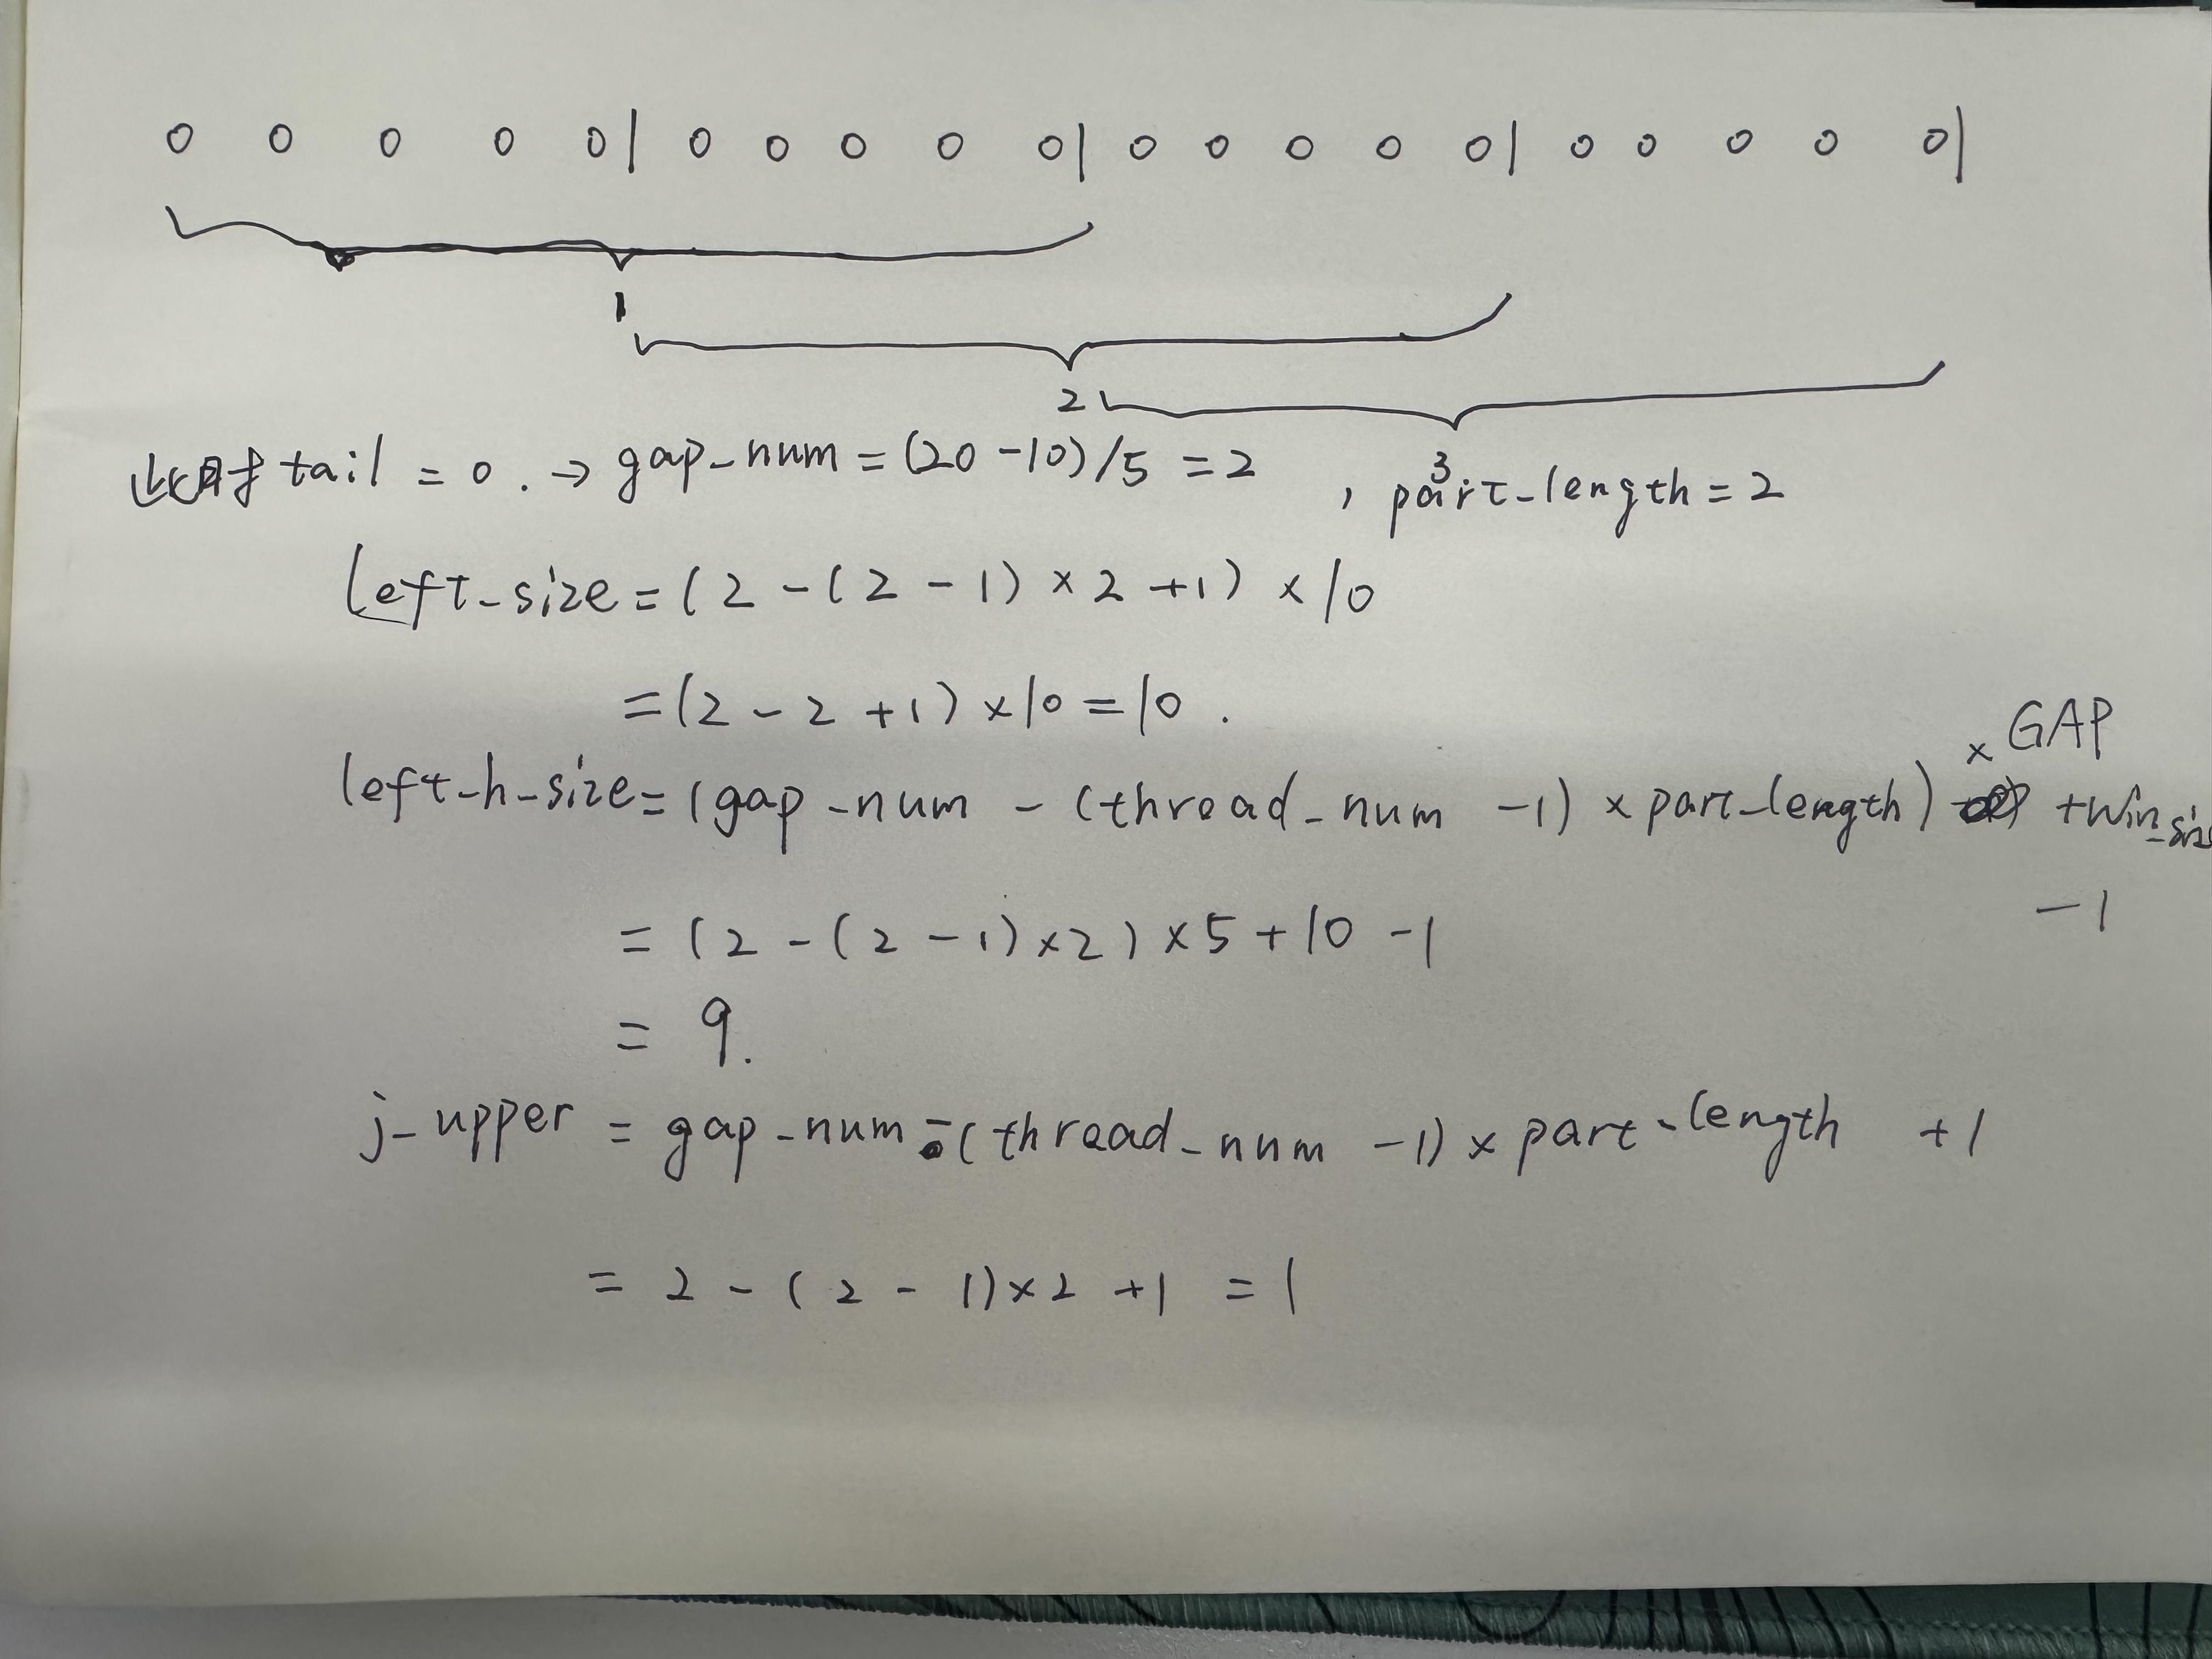 0 0 0 0 0| 0 0 0 0 0| 0 0 0 0 0| 0 0 0 0 0|
1
2
3
此时 tail = 0. → gap-num = (20-10)/5 = 2 , part-length = 2
left-size = (2 - (2 - 1) × 2 + 1) × 10
= (2 - 2 + 1) × 10 = 10.
× GAP
left-h-size = (gap-num - (thread-num - 1) × part-length) + win_siz
-1
= (2 - (2 - 1) × 2) × 5 + 10 - 1
= 9.
j-upper = gap-num - (thread-num - 1) × part-length + 1
= 2 - (2 - 1) × 2 + 1 = 1